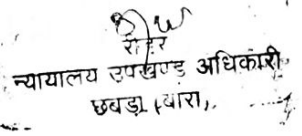 रीडर
न्यायालय उपखण्ड अधिकारी
छबड़ा (बारां)